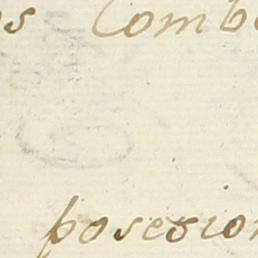 os Combe
posesion